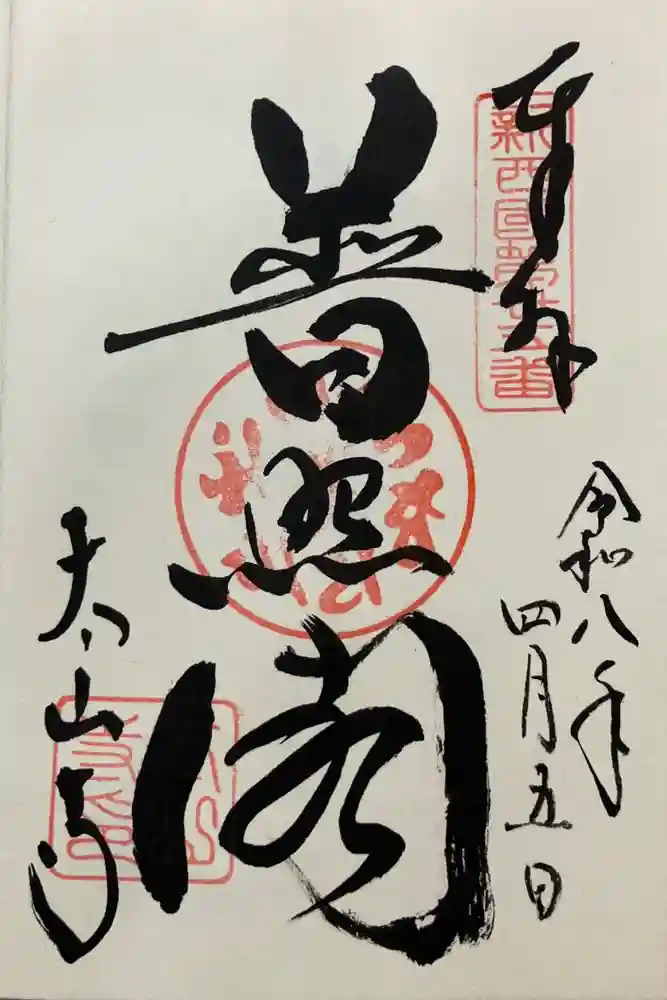 奉拝
新西國第廿五番
令和八年
四月五日
普照閣
太山寺